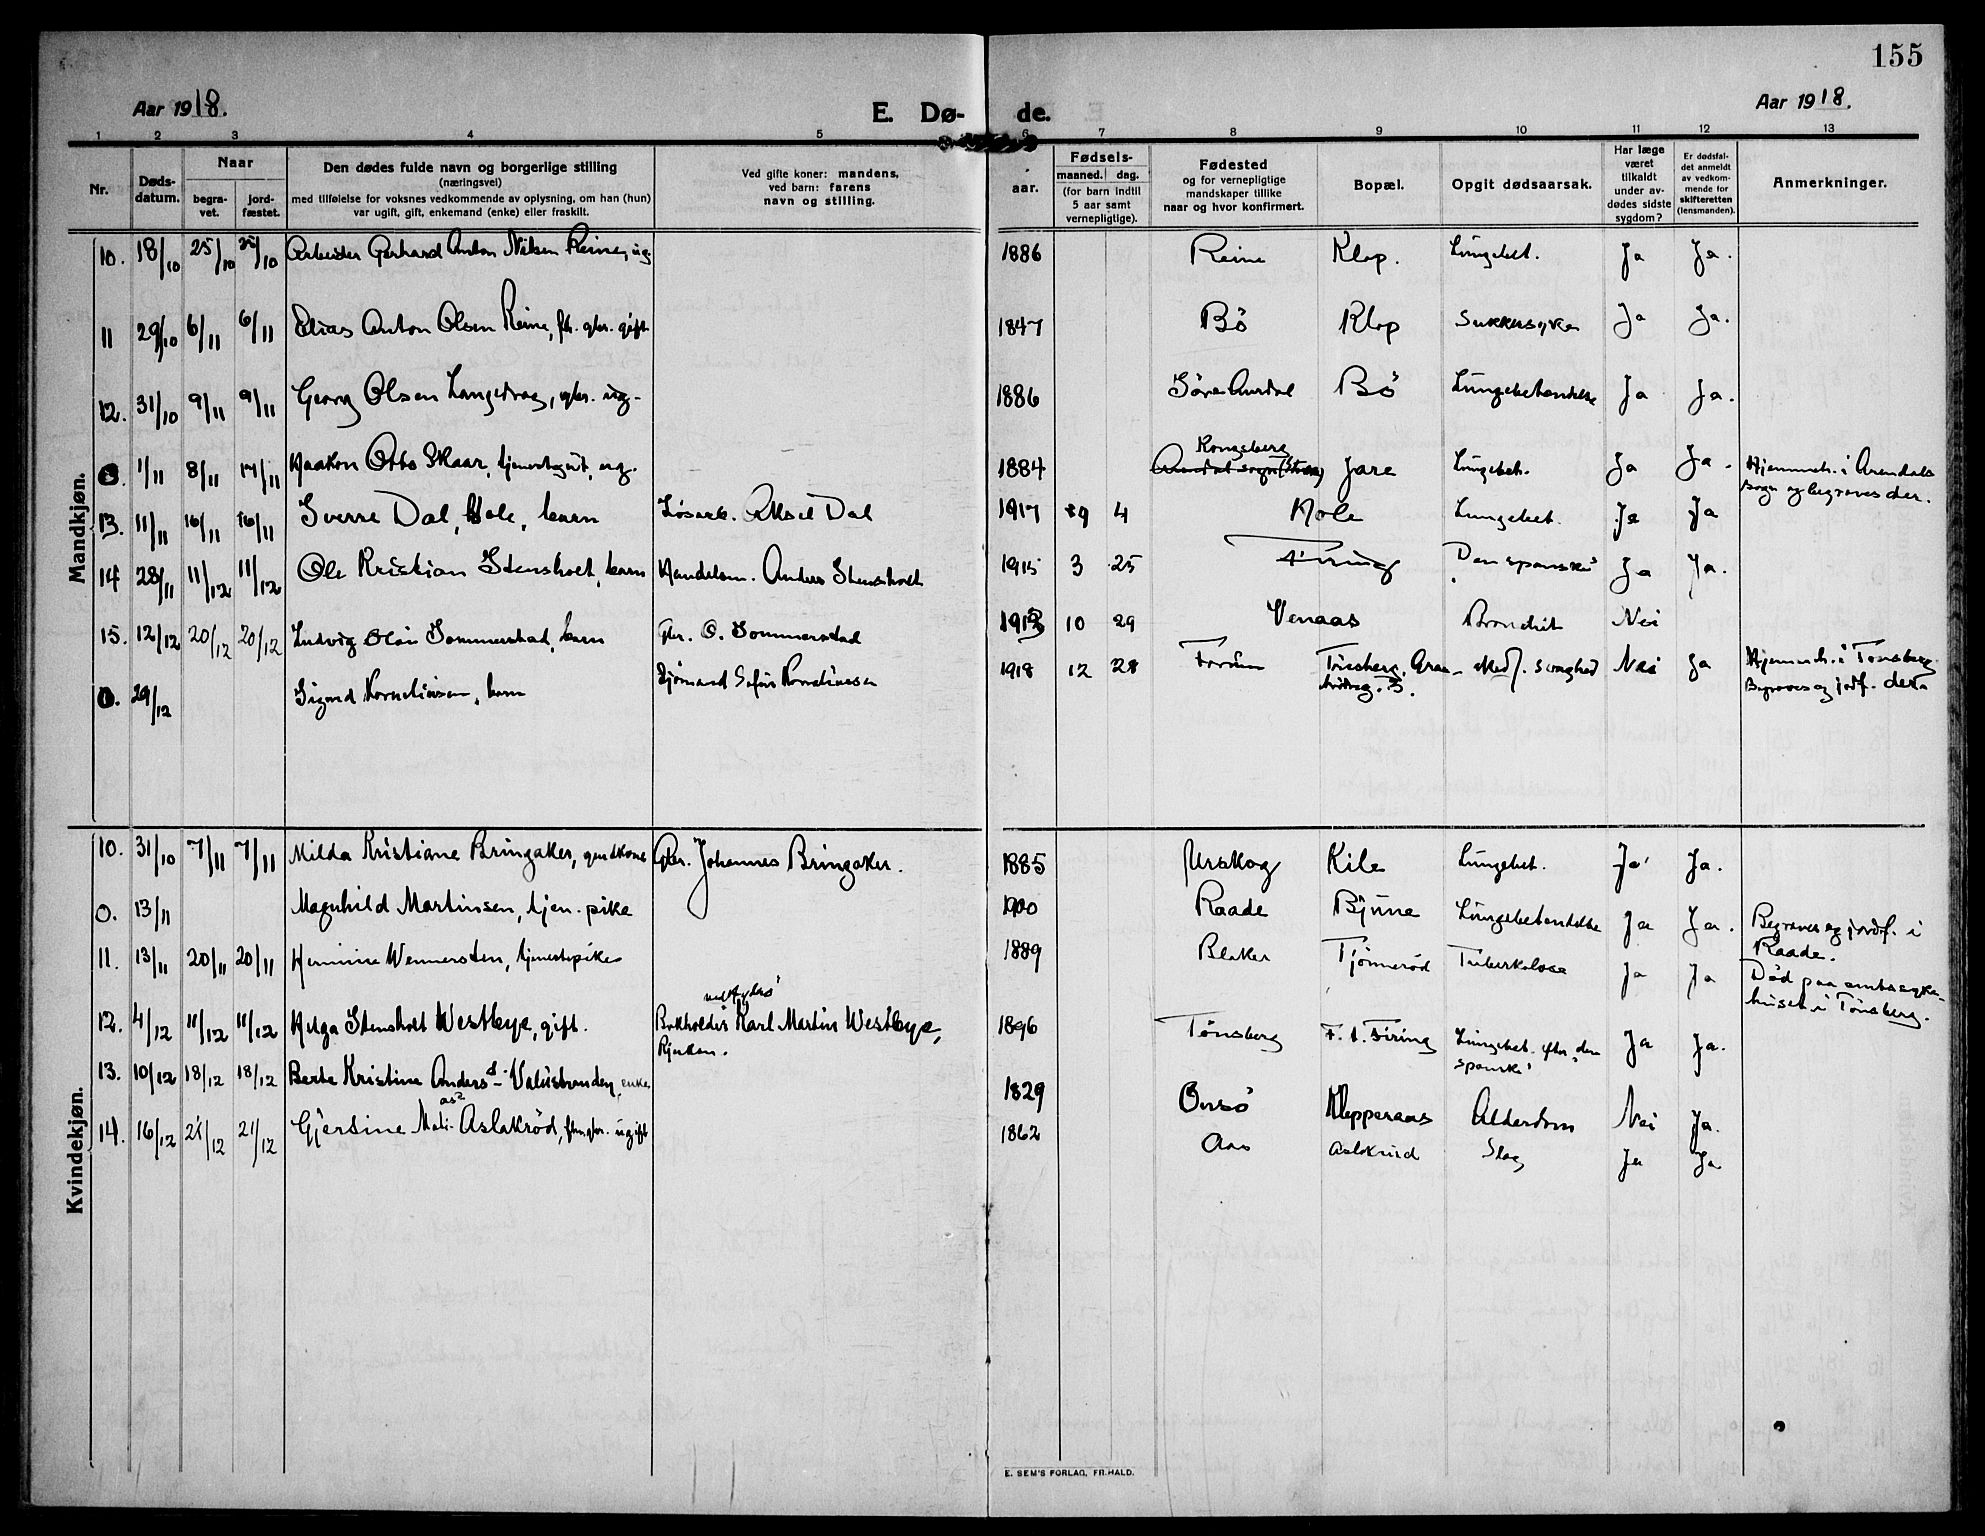 155
Aar 1918.
E. Dø-
de.
Aar 1918.
1 2 3 4 5 6 7 8 9 10 11 12 13
Nr.
Døds-
datum.
Naar
begra-
vet.
jord-
fæstet.
Den dødes fulde navn og borgerlige stilling
(næringsvei)
med tilføielse for voksnes vedkommende av oplysning, om han (hun)
var ugift, gift, enkemand (enke) eller fraskilt.
Ved gifte koner: mandens,
ved barn: farens
navn og stilling.
aar.
Fødsels-
maaned. dag.
(for barn indtil
5 aar samt
vernepligtige).
Fødested
og for vernepligtige
mandskaper tillike
naar og hvor konfirmert.
Bopæl.
Opgit dødsaarsak.
Har læge
været
tilkaldt
under av-
dødes sidste
sygdom?
Er dødsfal-
det anmeldt
av vedkom-
mende for
skifteretten
(lensmanden).
Anmerkninger.
Mandkjøn.
10. 18/10 25/10 25/10 Arbeider Gerhard Anton Nilsen Reine, ug. 1886 Reine Klop. Lungebet. Ja Ja.
11 29/10 6/11 6/11 Elias Anton Olsen Reine, fh. gbr. gift 1847 Bö Klop Sukkersyke Ja Ja.
12. 31/10 9/11 9/11 Georg Olsen Langedrag, gbr. ug. 1886 Söre Aurdal Bö Lungebetendelse Ja Ja.
0 1/11 8/11 17/11 Haakon Otto Skaar, tjenestegut, ug. 1884 Kongsberg Jare Lungebet. Ja Ja. Hjemmeh. i Arendals
sogn og begraves der.
13. 11/11 16/11 16/11 Sverre Dal, Hole, barn Løsarb. Aksel Dal 1917 9 4 Hole Lungebet. Ja Ja
14 28/11 11/12 11/12 Ole Kristian Stensholt, barn Handelsm. Anders Stensholt 1915 3 25 Firing "Den spanske" Ja Ja.
15. 12/12 20/12 20/12 Ludvig Olai Sommerstad, barn Gbr. O. Sommerstad 1913 10 29 Venaas Bronchit Nei
0. 29/12 Sigurd Korneliussen, barn Sjømand Sofus Korneliussen 1918 12 28 Forum Tønsberg, Medf. svaghed Nei Ja Hjemmeh. i Tønsberg.
Begraves og jordf. der.
Kvindekjøn.
10. 31/10 7/11 7/11 Milda Kristiane Bringaker, gaardkone Gbr. Johannes Bringaker. 1885 Urskog Kile Lungebet. Ja Ja.
0. 13/11 Magnhild Martinsen, tjen. pike 1900 Raade Bjune Lungebetendelse Ja Ja. Begraves og jordf. i
Raade.
11. 13/11 20/11 20/11 Hermine Wennersten, tjenestepike 1889 Blaker Tjönneröd Tuberkulose Ja Ja Död paa amtssyke-
huset i Tönsberg.
12. 4/12 11/12 11/12 Helga Stensholt Westbye, gift. Bokholder Karl Martin Westbye,
Rjukan. 1896 Tönsberg F. t. Firing Lungebet. efter "den
spanske" Ja Ja.
13. 10/12 18/12 18/12 Berte Kristine Andersd. Valústranden, enke 1829 Onsö Klopperaas Alderdom Nei Ja.
14. 16/12 21/12 21/12 Gjersine Mali Aslakröd, fhv. gbr. ugift 1862 Aas Aslakrud Slag Ja Ja
E. SEM'S FORLAG, FR.HALD.